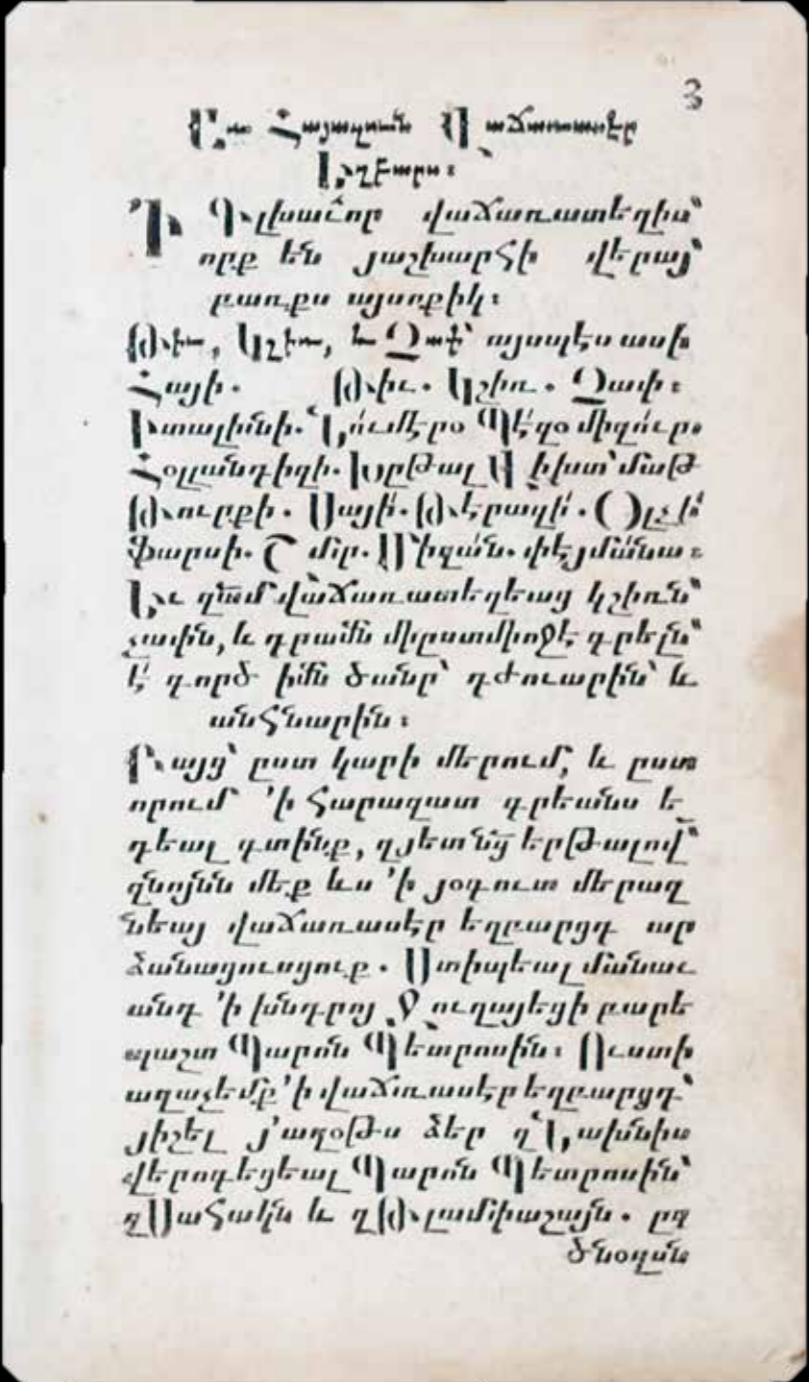 3
Հայազուն Վաճառասէր
Եղբարս։
Ի Գլխաւոր վաճառատեղիս՝
որք են յաշխարհի վերայ՝
բառքս այսոքիկ։
Թիւ, Կշիռ, և Չափ՝ այսպէս ասի
Հայի. Թիւ. Կշիռ. Չափ։
Իտալիմնի. Նումէրօ Պէզօ միզուրօ
Հօլլանդիզի. Խըթալ Վիխտ՝ մաթ
Թուրքի. Սայի. Թէրազի. Օլչի
Ֆարսի. Շմիր. Միզան. փէյմանա։
Եւ զնմ վաճառատեղեաց կշիռն՝
չափն, և դրամն մըստմիոջէ գրելն՝
է գործ իմն ծանր՝ դժուարին՝ և
անհնարին։
Բայց՝ ըստ կարի մերում, և ըստ
որում ՚ի հարազատ գրեանս ե
դեալ գտինք, զհետ նց երթալով՝
զնոյնն մեք ևս ՚ի յօգուտ մերազ
նեայ վաճառասէր եղբարցդ ար
ձանացուսցուք. Ստիպեալ մանաւ
անդ ՚ի խնդրոյ Ջուղայեցի բարե
պաշտ Պարոն Պետրոսին։ Ուստի
աղաչեմք ՚ի վաճառասէր եղբարցդ՝
յիշել յ՚աղօթս ձեր զՆախնիս
վերոգեցեալ Պարոն Պետրոսին՝
զՍահակն և զԹլամիաշայն. ըզ
ծնօղսն